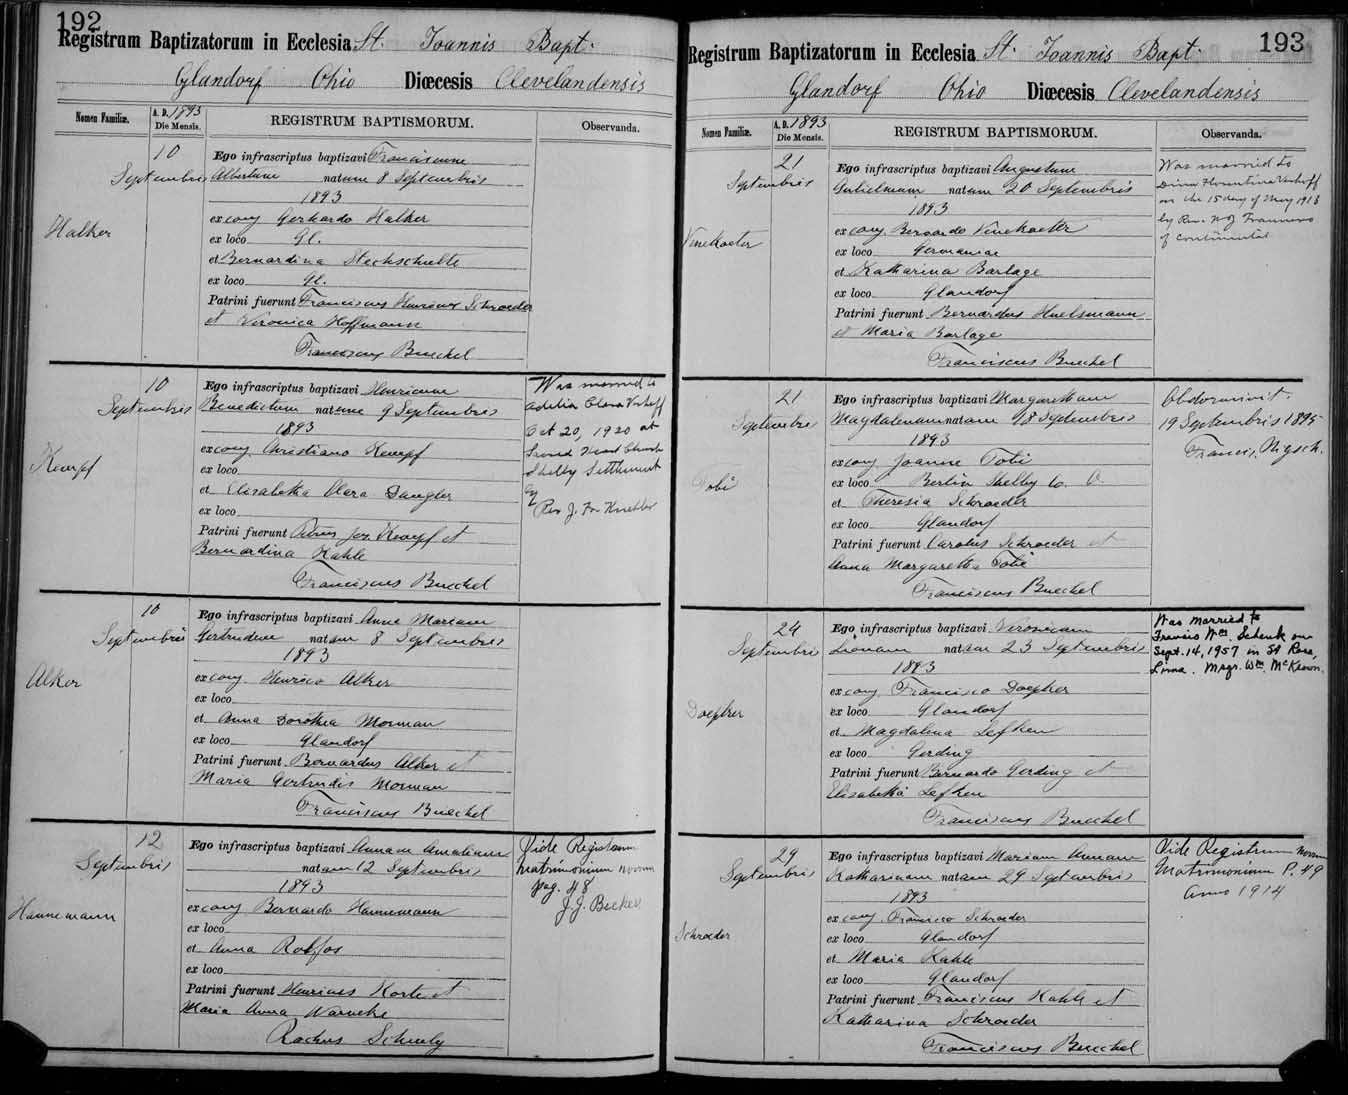 192
Registrum Baptizatorum in Ecclesia St. Joannis Bapt.
Glandorf Ohio Diœcesis Clevelandensis
Nomen Familiæ. A. D. 1893 Die Mensis. REGISTRUM BAPTISMORUM. Observanda.
Halker
10
Septembris
Ego infrascriptus baptizavi Franciscum
Albertum natum 8 Septembris
1893
ex conj Gerhardo Halker
ex loco Gl.
et Bernardina Steckschulte
ex loco Gl.
Patrini fuerunt Franciscus Henricus Schroeder
et Veronica Hoffmann
Franciscus Bueckel
Kempf
10
Septembris
Ego infrascriptus baptizavi Henricum
Benedictum natum 9 Septembris
1893
ex conj Christiano Kempf
ex loco
et Elisabetha Clara Dangler
ex loco
Patrini fuerunt Petrus Jos. Kempf et
Bernardina Kahle
Franciscus Bueckel
Was married to
Adelia Clara Verhoff
Oct 20, 1920 at
Sacred Heart Church
Shelby Settlement
by
Rev J. Fr.
Alker
10
Septembris
Ego infrascriptus baptizavi Anna Mariam
Gertrudem natam 8 Septembris
1893
ex conj Henrico Alker
ex loco
et Anna Dorothea Morman
ex loco Glandorf
Patrini fuerunt Bernardus Alker et
Maria Gertrudis Morman
Franciscus Bueckel
Hannemann
12
Septembris
Ego infrascriptus baptizavi Annam Amaliam
natam 12 Septembris
1893
ex conj Bernardo Hannemann
ex loco
et Anna Rolfos
ex loco
Patrini fuerunt Henricus Korte et
Maria Anna Warneke
Rochus Schuely
Vide Registrum
Matrimonium novum
pag. 48
J.J. Becker
193
Registrum Baptizatorum in Ecclesia St. Joannis Bapt.
Glandorf Ohio Diœcesis Clevelandensis
Nomen Familiæ. A. D. 1893 Die Mensis. REGISTRUM BAPTISMORUM. Observanda.
Vinekoeter
21
Septembris
Ego infrascriptus baptizavi Augustum
Gulielmum natum 20 Septembris
1893
ex conj. Bernardo Vinekoeter
ex loco Germaniae
et Katharina Barlage
ex loco Glandorf
Patrini fuerunt Bernardus Huelsmann
et Maria Barlage
Franciscus Bueckel
Was married to
Dina Florentina Verhoff
on the 15 day of May 1918
by Rev.
of Continental
Tobe
21
Septembris
Ego infrascriptus baptizavi Margaretham
Magdalenam natam 18 Septembris
1893
ex conj Joanne Tobe
ex loco Berlin Shelby Co. O.
et Theresia Schroeder
ex loco Glandorf
Patrini fuerunt Carolus Schroeder et
Anna Margaretha Tobe
Franciscus Bueckel
Obdormivit
19 Septembris 1895
Francis. Nigsch.
Doepker
24
Septembris
Ego infrascriptus baptizavi Veronicam
Leonam natam 23 Septembris
1893
ex conj Francisco Doepker
ex loco Glandorf
et Magdalena Lefken
ex loco Gerding
Patrini fuerunt Bernardo Gerding et
Elisabetha Lefken
Franciscus Bueckel
Was Married to
Francis Wm. Schenk on
Sept. 14, 1957 in St Rose,
Lima. Msgr. Wm. McKeown.
Schroeder
29
Septembris
Ego infrascriptus baptizavi Mariam Annam
Katharinam natam 29 Septembris
1893
ex conj. Francisco Schroeder
ex loco Glandorf
et Maria Kahle
ex loco Glandorf
Patrini fuerunt Franciscus Kahle et
Katharina Schroeder
Franciscus Bueckel
Vide Registrum novum
Matrimonium P. 49
Anno 1914